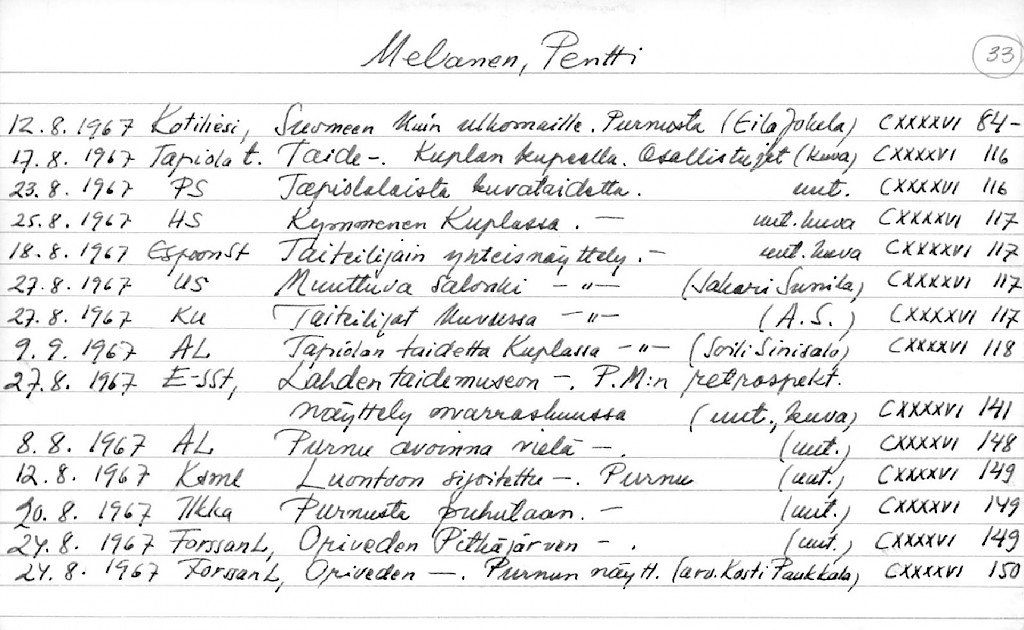 Melanen, Pentti 33
12.8.1967 Kotiliesi, Suomeen kuin ulkomaille. Purnusta (Eila Jokela) CXXXXVI 84-
17.8.1967 Tapiola t. Taide-. Kuplan kupeella. Osallistujat (kuva) CXXXXVI 116
23.8.1967 PS Tapiolalaista kuvataidetta. uut. CXXXXVI 116
25.8.1967 HS Kymmenen Kuplassa. — uut. kuva CXXXXVI 117
18.8.1967 EspoonSt Taiteilijain yhteisnäyttely. - uut. kuva CXXXXVI 117
27.8.1967 US Muuttuva salonki -"- (Sakari Sunila) CXXXXVI 117
27.8.1967 KU Taiteilijat kuvussa -"- (A.S.) CXXXXVI 117
9.9.1967 AL Tapiolan taidetta Kuplassa -"- (Soili Sinisalo) CXXXXVI 118
27.8.1967 E-SSt, Lahden taidemuseon -. P.M:n retrospekt.
näyttely marraskuussa (uut., kuva) CXXXXVI 141
8.8.1967 AL Purnu avoinna vielä -. (uut.) CXXXXVI 148
12.8.1967 Ksml Luontoon sijoitettu -. Purnu (uut.) CXXXXVI 149
20.8.1967 Ilkka Purnusta puhutaan. - (uut.) CXXXXVI 149
24.8.1967 ForssanL, Oriveden Pitkäjärven - . (uut.) CXXXXVI 149
24.8.1967 ForssanL, Oriveden —. Purnun näytt. (arv. Kosti Paukkala) CXXXXVI 150